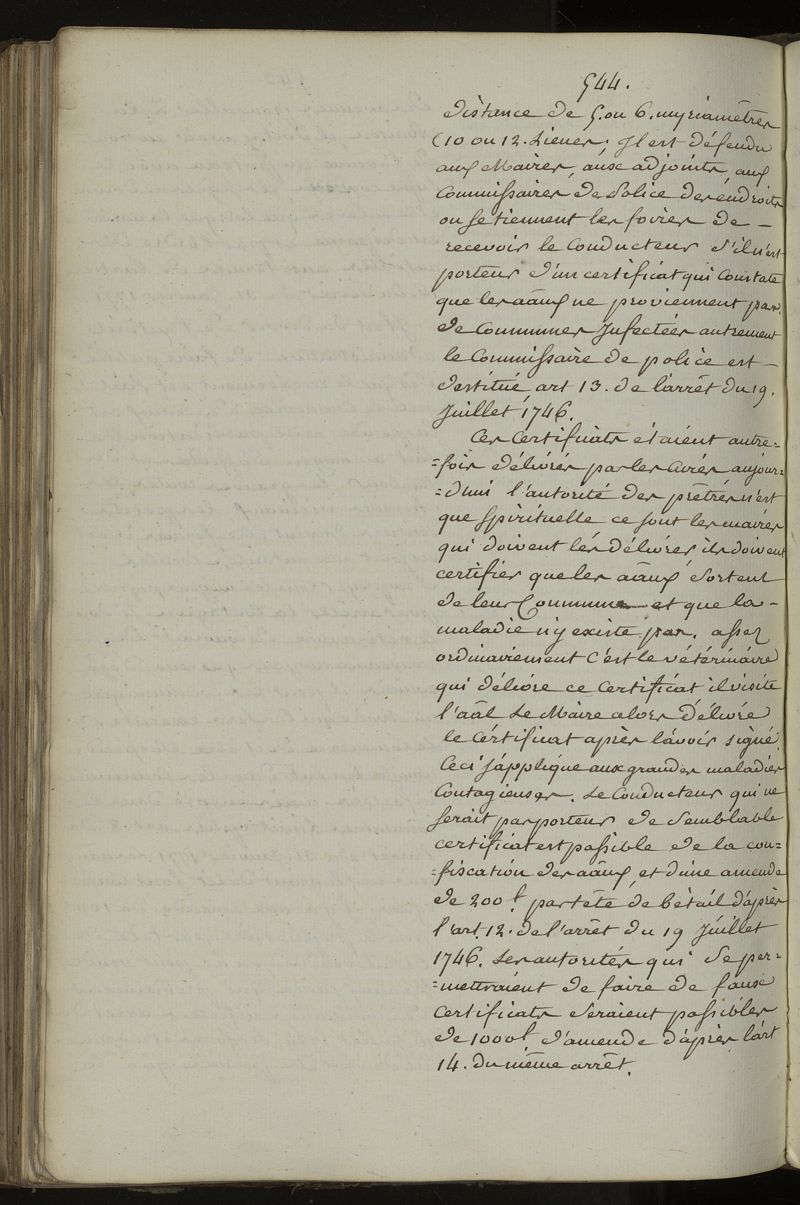 544.
distance de 5. ou 6. myriamêtres
(10 ou 12. Lieues; Il est défendu
aux Maires, aux adjoints, aux
Commissaires de Police des éndroits
ou se tiennent les foires de –
recevoir le Conducteur s'il n'est
porteur d'un certificat qui Constate
que les aâux ne proviennent pas
de Communes Infectées autrement
le Commissaire de police est –
destitué, art 13. de l'arrêt du 19.
Juillet 1746.
Ces Certificats étaient autre=
=fois délivrés par les Curés aujour=
=d'hui l'autorité des prêtres n'est
que Spirituelle ce sont les maires
qui doivent les délivrer ils doivent
certifier que les aâux sortent
de leur Commune et que la –
maladie n'y existe pas. assez
ordinairement C'est le vétérinaire
qui délivre ce Certificat il visite
l'aâl Le Maire alors délivre
le Certificat après l'avoir signé.
Ceci s'applique aux grandes maladies
Contagieuses. Le Conducteur qui ne
serait pas porteur de semblable
certificat est passible de la con=
=fiscation des aâux, et d'une amende
de 200 l. par tête de bétail d'après
l'art. 12. de l'arrêt du 19 Juillet
1746. Les autorités qui se per=
=mettraient de faire de faux
Certificats seraient passibles
de 1000 l. d'amende d'après l'art
14. du même arrêt.